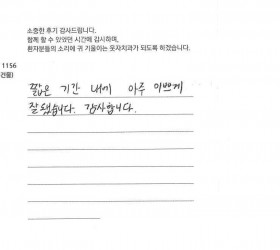 소중한 후기 감사드립니다.
함께 할 수 있었던 시간에 감사하며,
환자분들의 소리에 귀 기울이는 웃자치과가 되도록 하겠습니다.
1156
건물)
짧은 기간 내에 아주 이쁘게
잘됐습니다. 감사합니다.